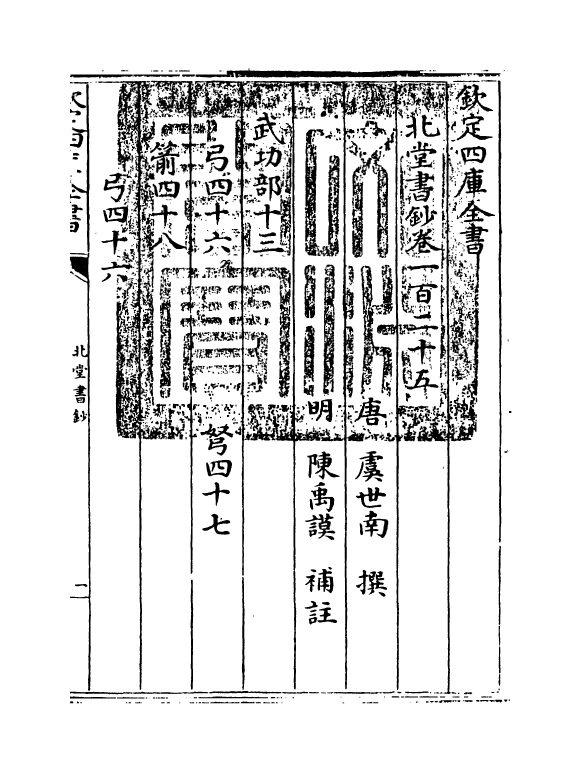 欽定四庫全書
北堂書鈔卷一百二十五
唐 虞世南 撰
明 陳禹謨 補註
武功部十三
弓四十六 弩四十七
箭四十八
弓四十六
北堂書鈔
一